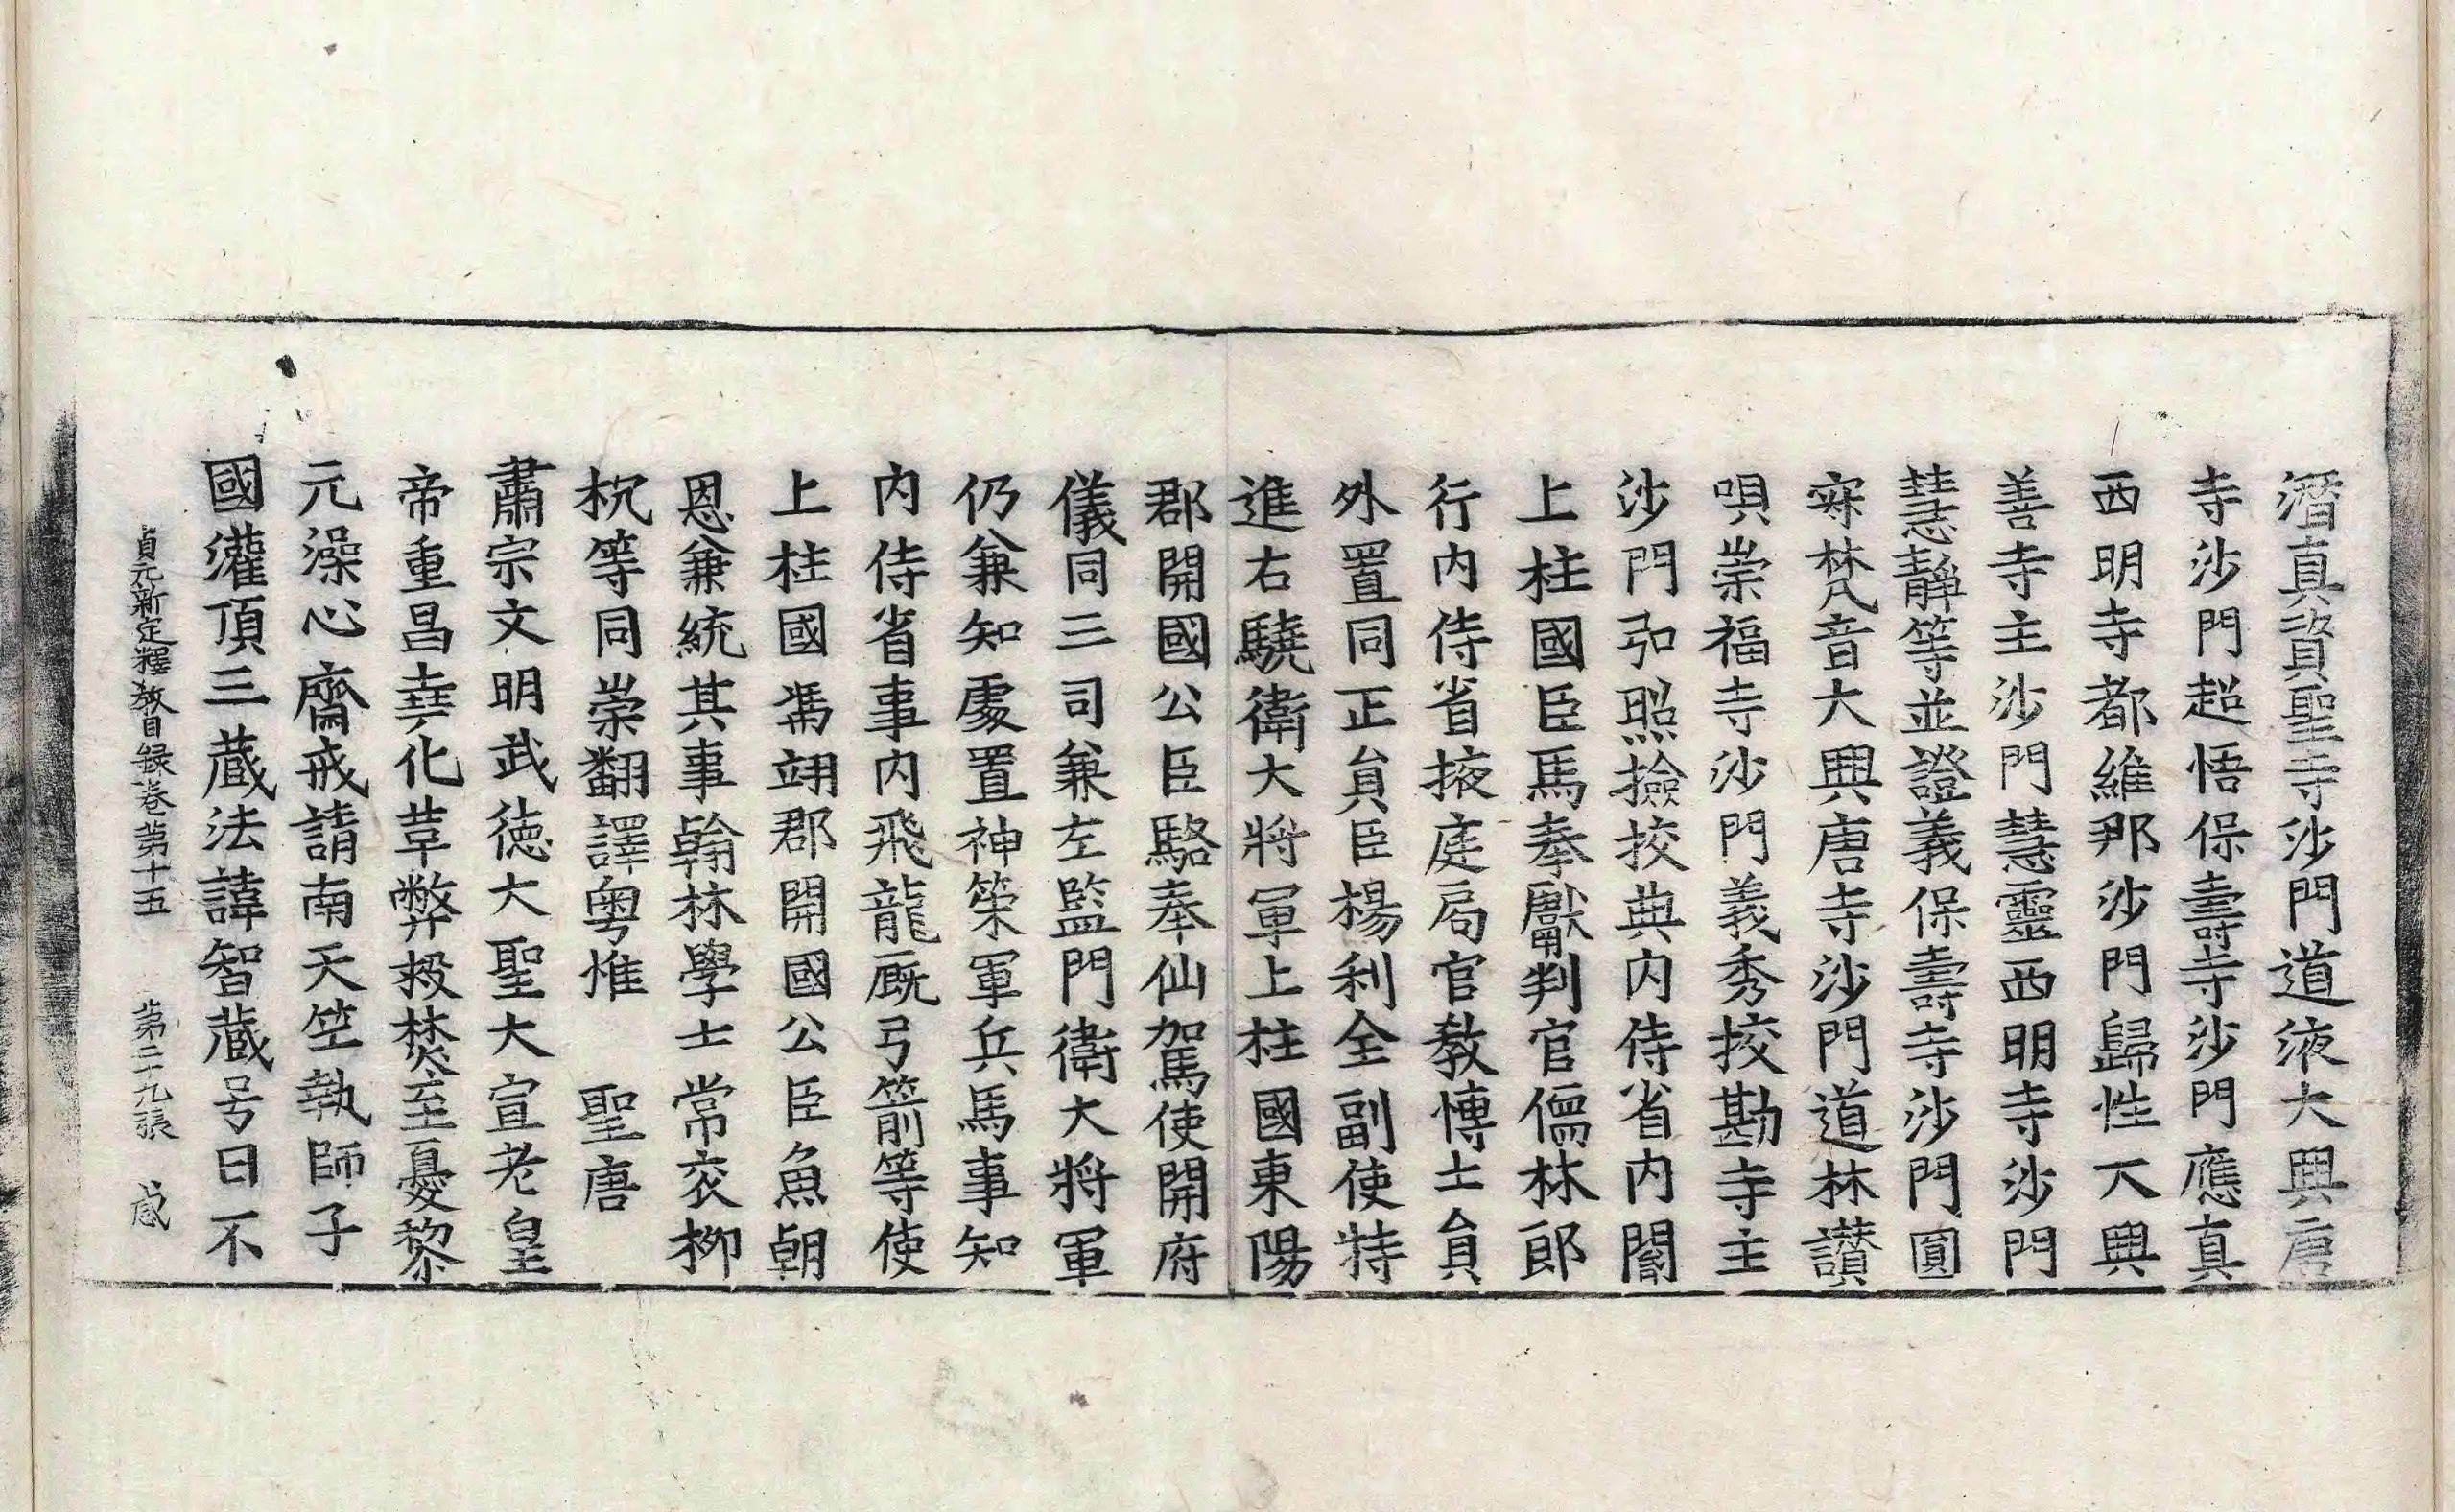 潛真資聖寺沙門道液大興唐
寺沙門超悟保壽寺沙門應真
西明寺都維那沙門歸性大興
善寺主沙門慧靈西明寺沙門
慧靜等並證義保壽寺沙門圓
寂梵音大興唐寺沙門道林讚
唄崇福寺沙門義秀挍勘寺主
沙門弘照撿挍典內侍省內閣
上柱國臣馬奉獻判官儒林郎
行內侍省掖庭局官教博士貟
外置同正貟臣楊利全副使特
進右驍衛大將軍上柱國東陽
郡開國公臣駱奉仙駕使開府
儀同三司兼左監門衛大將軍
仍兼知處置神策軍兵馬事知
內侍省事內飛龍廐弓箭等使
上柱國馮翊郡開國公臣魚朝
恩兼統其事翰林學士常衮柳
枕等同崇翻譯粤惟　聖唐
肅宗文明武德大聖大宣孝皇
帝重昌堯化革弊救焚至憂黎
元澡心齋戒請南天竺執師子
國灌頂三藏法諱智藏号曰不
貞元新定釋教目録卷第十五　第二十九張　感